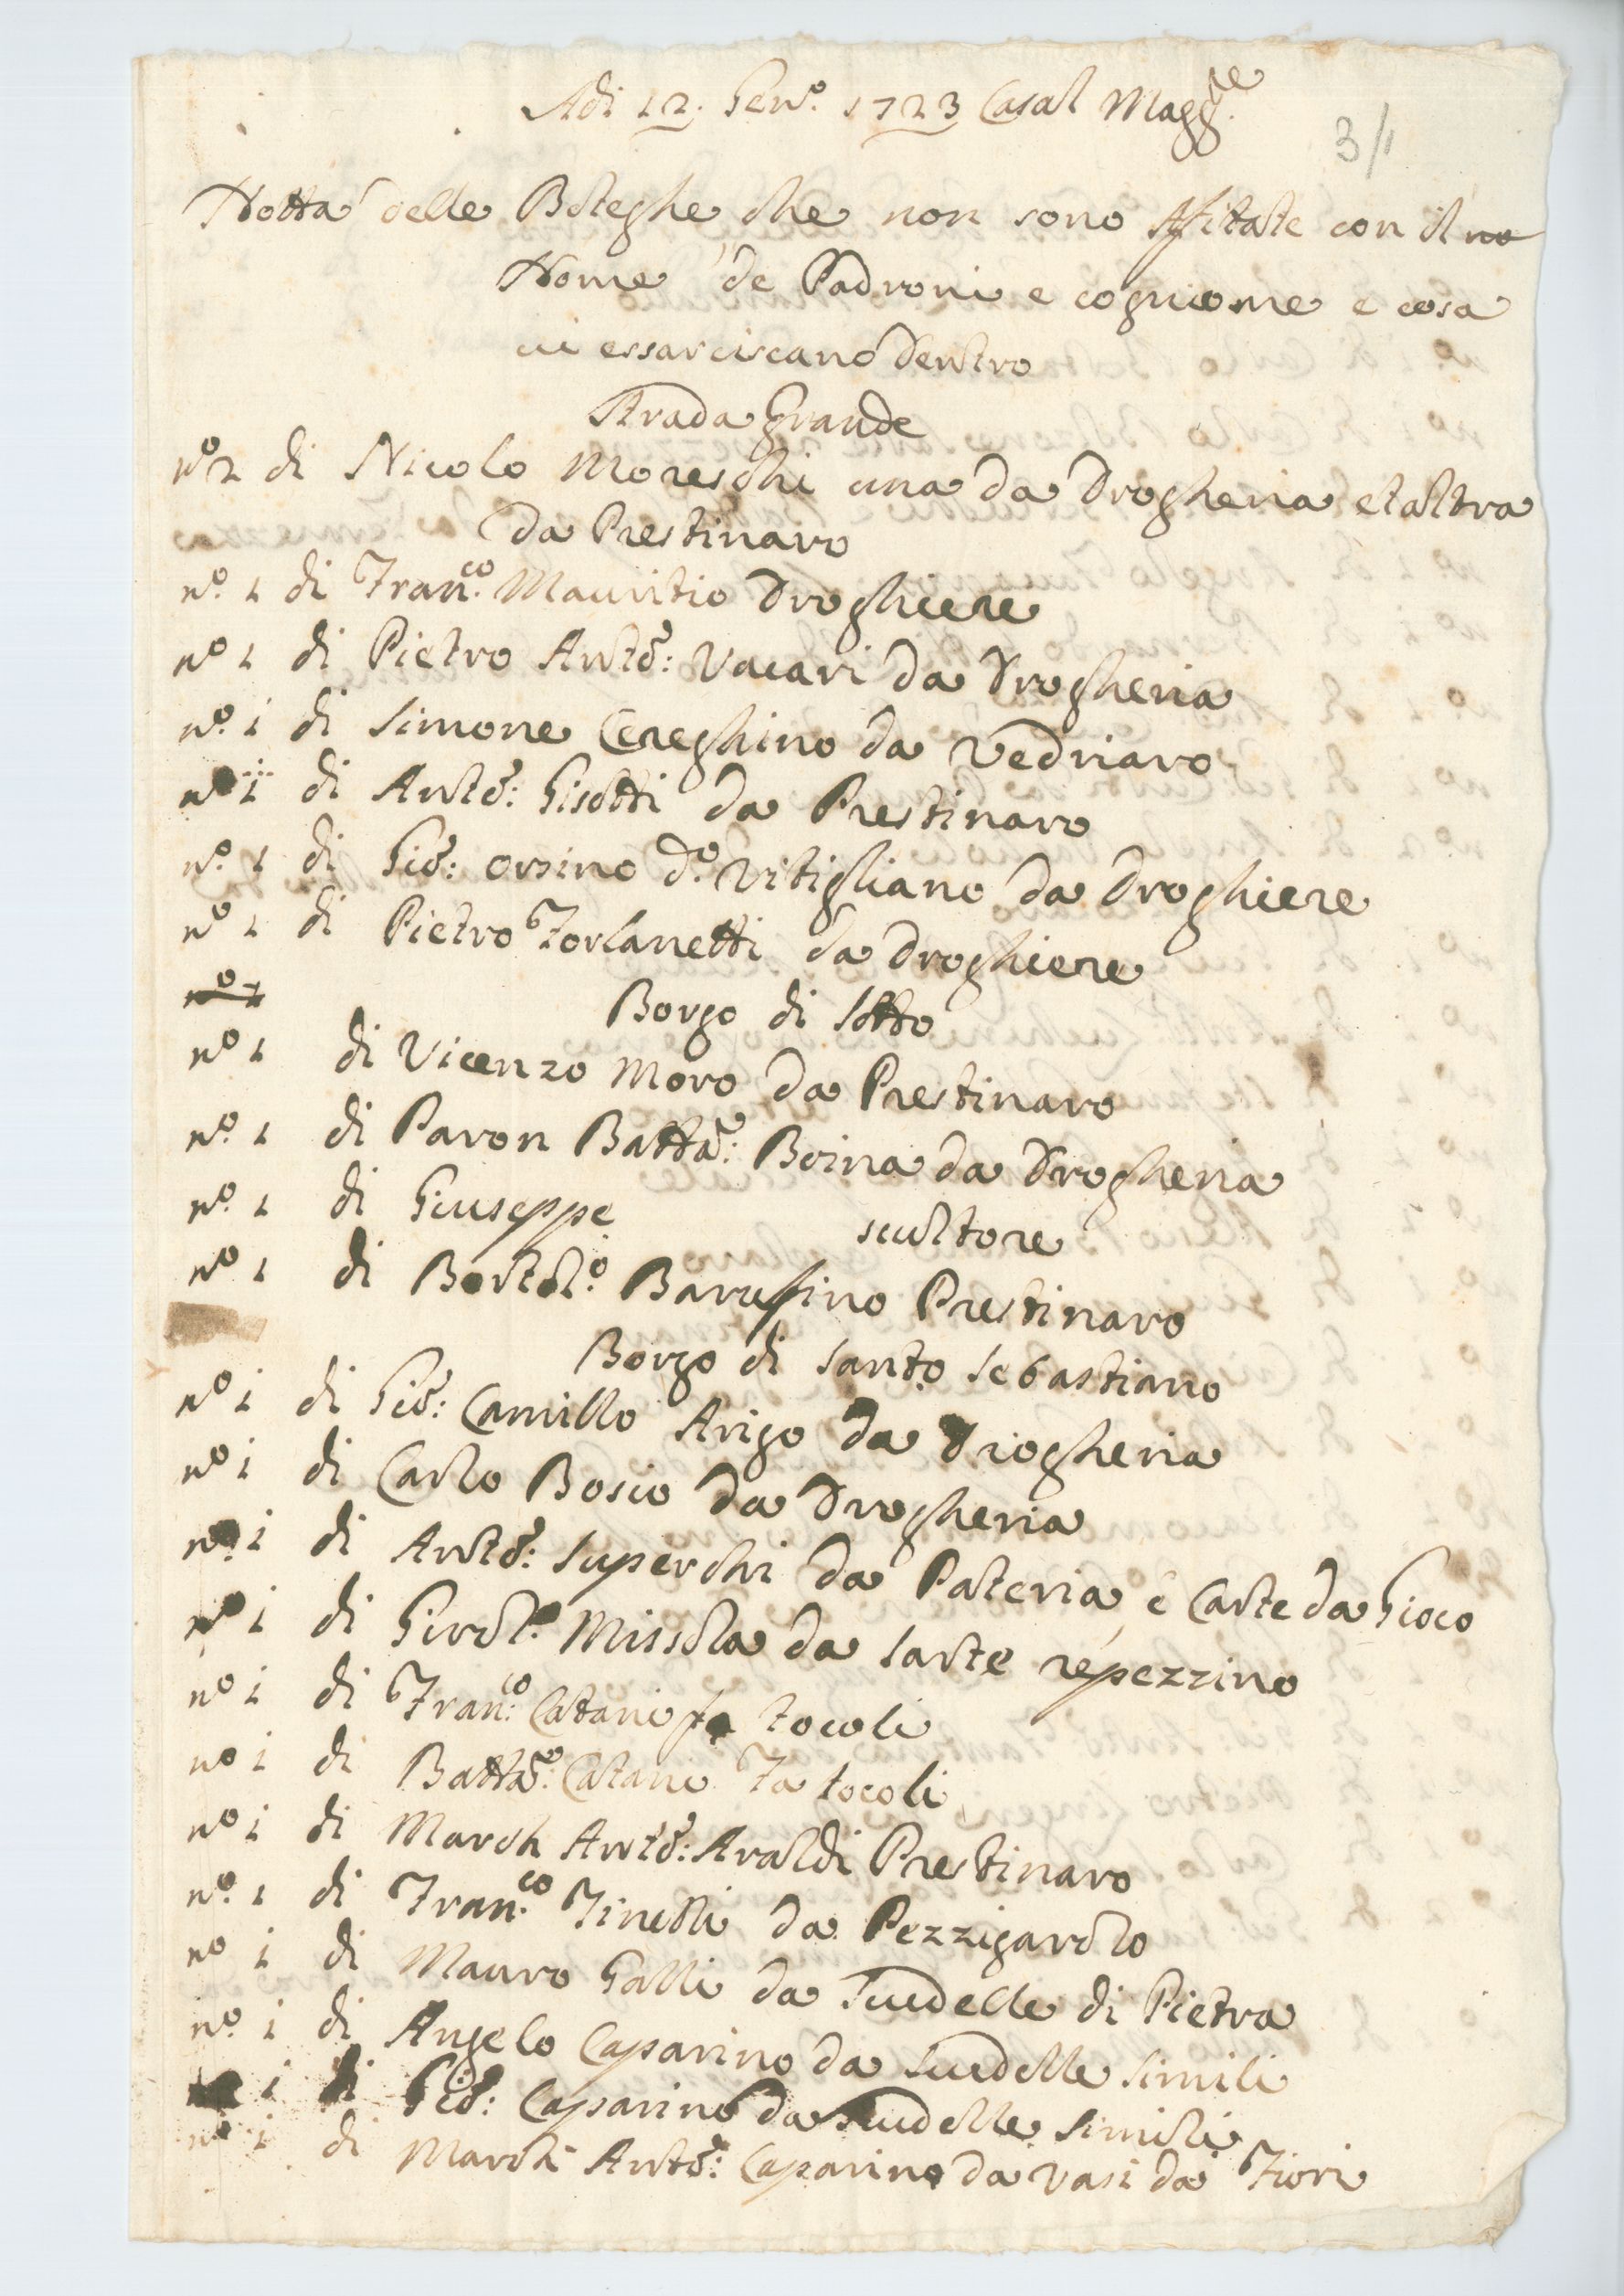 Adi 12. Gen.º 1723 Casal Magg.re
3/1
Notta delle Boteghe che non sono Afitate con il no
Nome de Padroni e cogniome e cosa
vi essarciscano dentro
Strada Grande
nº 2 di Nicolo Moreschi una da Drogheria et altra
da Prestinaro
nº. 1 di Fran.co Mauritio Droghiere
nº 1 di Pietro Antº: Vacari da Drogheria
nº. i di Simone Cereghino da Vedriaro
nº i di Antº: Gisotti da Prestinaro
nº. 1 di Giõ: Orsino dº. Vitigliano da Droghiere
nº 1 di Pietro Forlanetti da Droghiere
nº 1
Borgo di Sotto
nº 1 di Vicenzo Moro da Prestinaro
nº. 1 di Paron Battã: Boina da Drogheria
nº. 1 di Giuseppe scultore
nº 1 di Bortol.º Baruffino Prestinaro
Borgo di Santo Sebastiano
nº i di Giõ: Camillo Arigo da Drogheria
nº i di Carlo Bosio da Drogheria
nº. i di Antº: Superchi da Pateria e Carte da Gioco
nº i di Girol.º Missola da Sarte repezzino
nº i di Fran.co Catani fa tocoli
nº i di Battã: Catani Fa tocoli
nº i di March Antº: Araldi Prestinaro
nº. 1 di Fran.co Finelli da Pezzigarolo
nº i di Mauro Galli da Scudelle di Pietra
nº. i di Angelo Caparino da Scudelle simili
i di Giõ: Caparino da Scudelle simili
nº i di March Antº: Caparino da vasi da Fiori